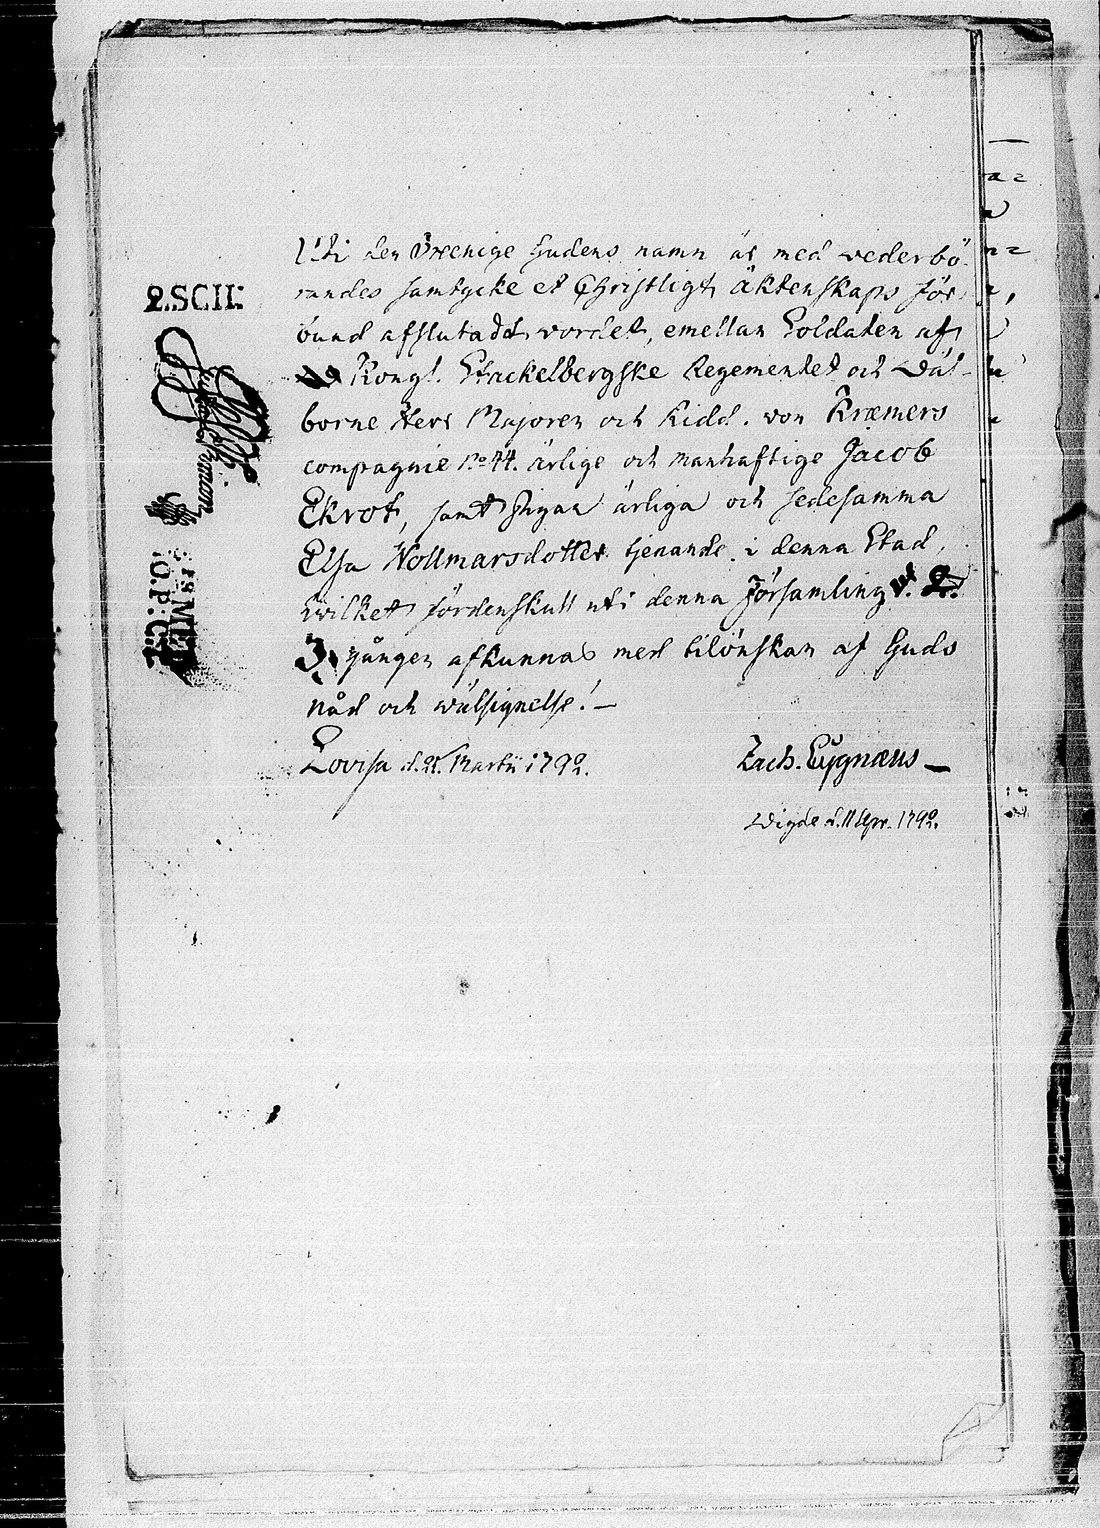 Uti den Treenige Gudens namn är med vederbö-
randes samtycke et Christligt äktenskaps för-
bund afslutadt vordet, emellan Soldaten af
Kongl. Stackelbergske Regementet och Väl-
borne Herr Majoren och Ridd. von Kræmers
compagnie No 44. ärlige och manhaftige Jacob
Ekrot, samt Pigan ärliga och sedesamma
Elsa Wollmarsdotter tjenande i denna Stad,
hvilket fördenskull uti denna Församling 2.
3. gången afkunnas med tilönskan af Guds
nåd och wälsignelse! —
Lovisa d. 21. Martii 1792.
Zach. Cygnæus —
Wigde d. 11 Apr. 1792.
2.SCH: